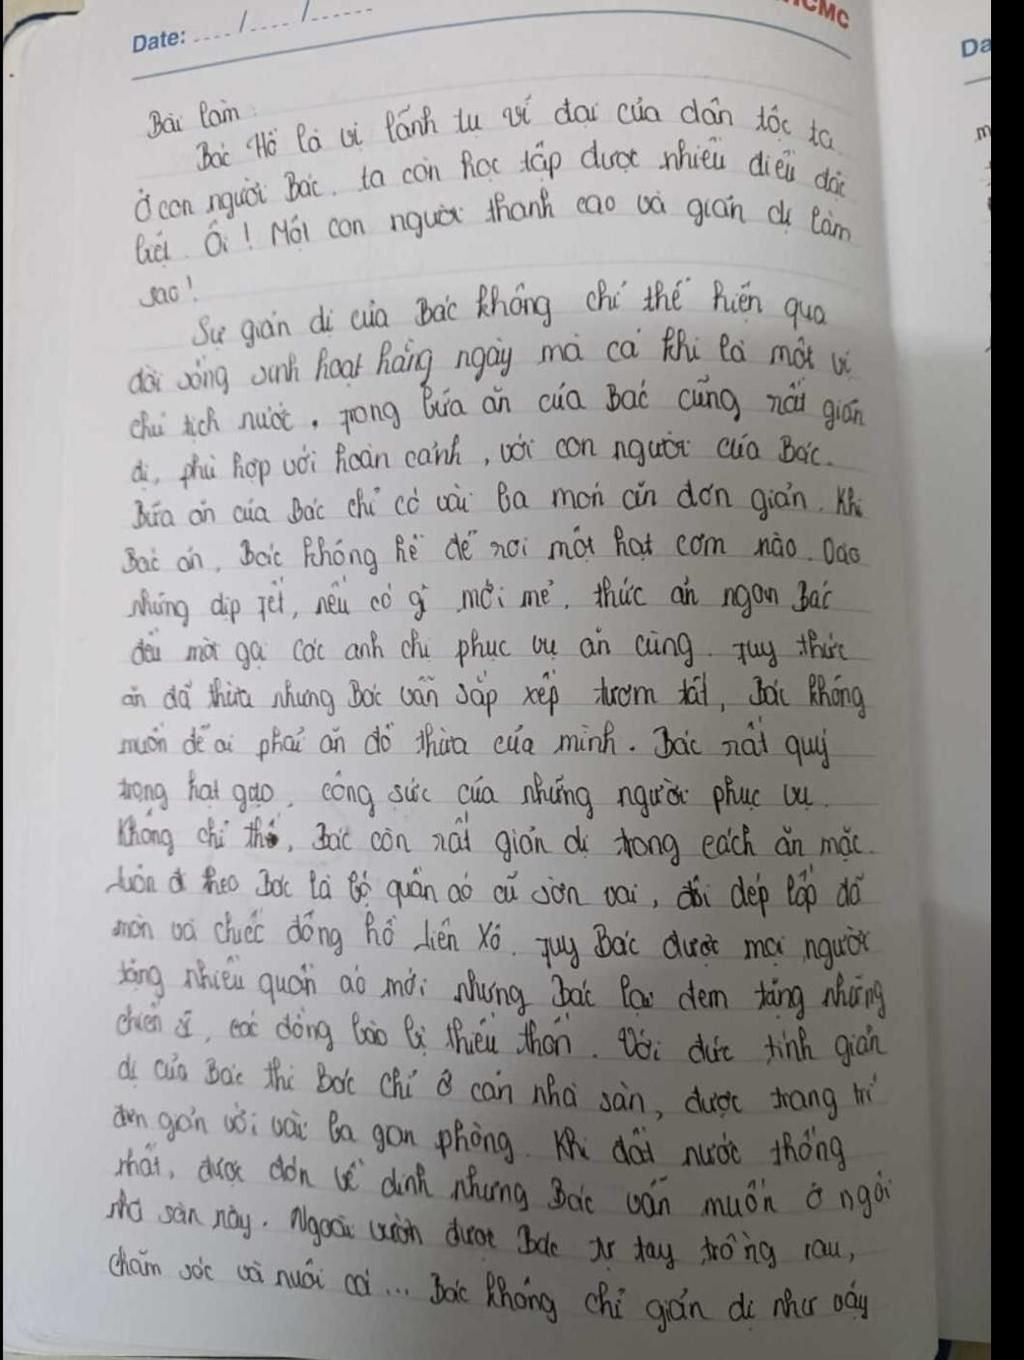 HCMC
Date: ..../..../......
Da
Bài làm:
Bác Hồ là vị lãnh tụ vĩ đại của dân tộc ta.
Ở con người Bác, ta còn học tập được nhiều điều đặc
biệt. Ôi! Một con người thanh cao và giản dị làm
sao!
Sự giản dị của Bác không chỉ thể hiện qua
đời sống sinh hoạt hằng ngày mà cả khi là một vị
chủ tịch nước. Trong bữa ăn của Bác cũng rất giản
dị, phù hợp với hoàn cảnh, với con người của Bác.
Bữa ăn của Bác chỉ có vài ba món ăn đơn giản. Khi
Bác ăn, Bác không hề để rơi một hạt cơm nào. Vào
những dịp Tết, nếu có gì mới mẻ, thức ăn ngon Bác
đều mời gọi các anh chị phục vụ ăn cùng. Tuy thức
ăn đã thừa nhưng Bác vẫn sắp xếp tươm tất, Bác không
muốn để ai phải ăn đồ thừa của mình. Bác rất quý
trọng hạt gạo, công sức của những người phục vụ.
Không chỉ thế, Bác còn rất giản dị trong cách ăn mặc.
Luôn đi theo Bác là bộ quần áo cũ sờn vai, đôi dép lốp đã
mòn và chiếc đồng hồ Liên Xô. Tuy Bác được mọi người
tặng nhiều quần áo mới nhưng Bác lại đem tặng những
chiến sĩ, các đồng bào bị thiếu thốn. Với đức tính giản
dị của Bác thì Bác chỉ ở căn nhà sàn, được trang trí
đơn giản với vài ba gian phòng. Khi đất nước thống
nhất, được đón về dinh nhưng Bác vẫn muốn ở ngôi
nhà sàn này. Ngoài vườn được Bác tự tay trồng rau,
chăm sóc và nuôi cá... Bác không chỉ giản dị như vậy